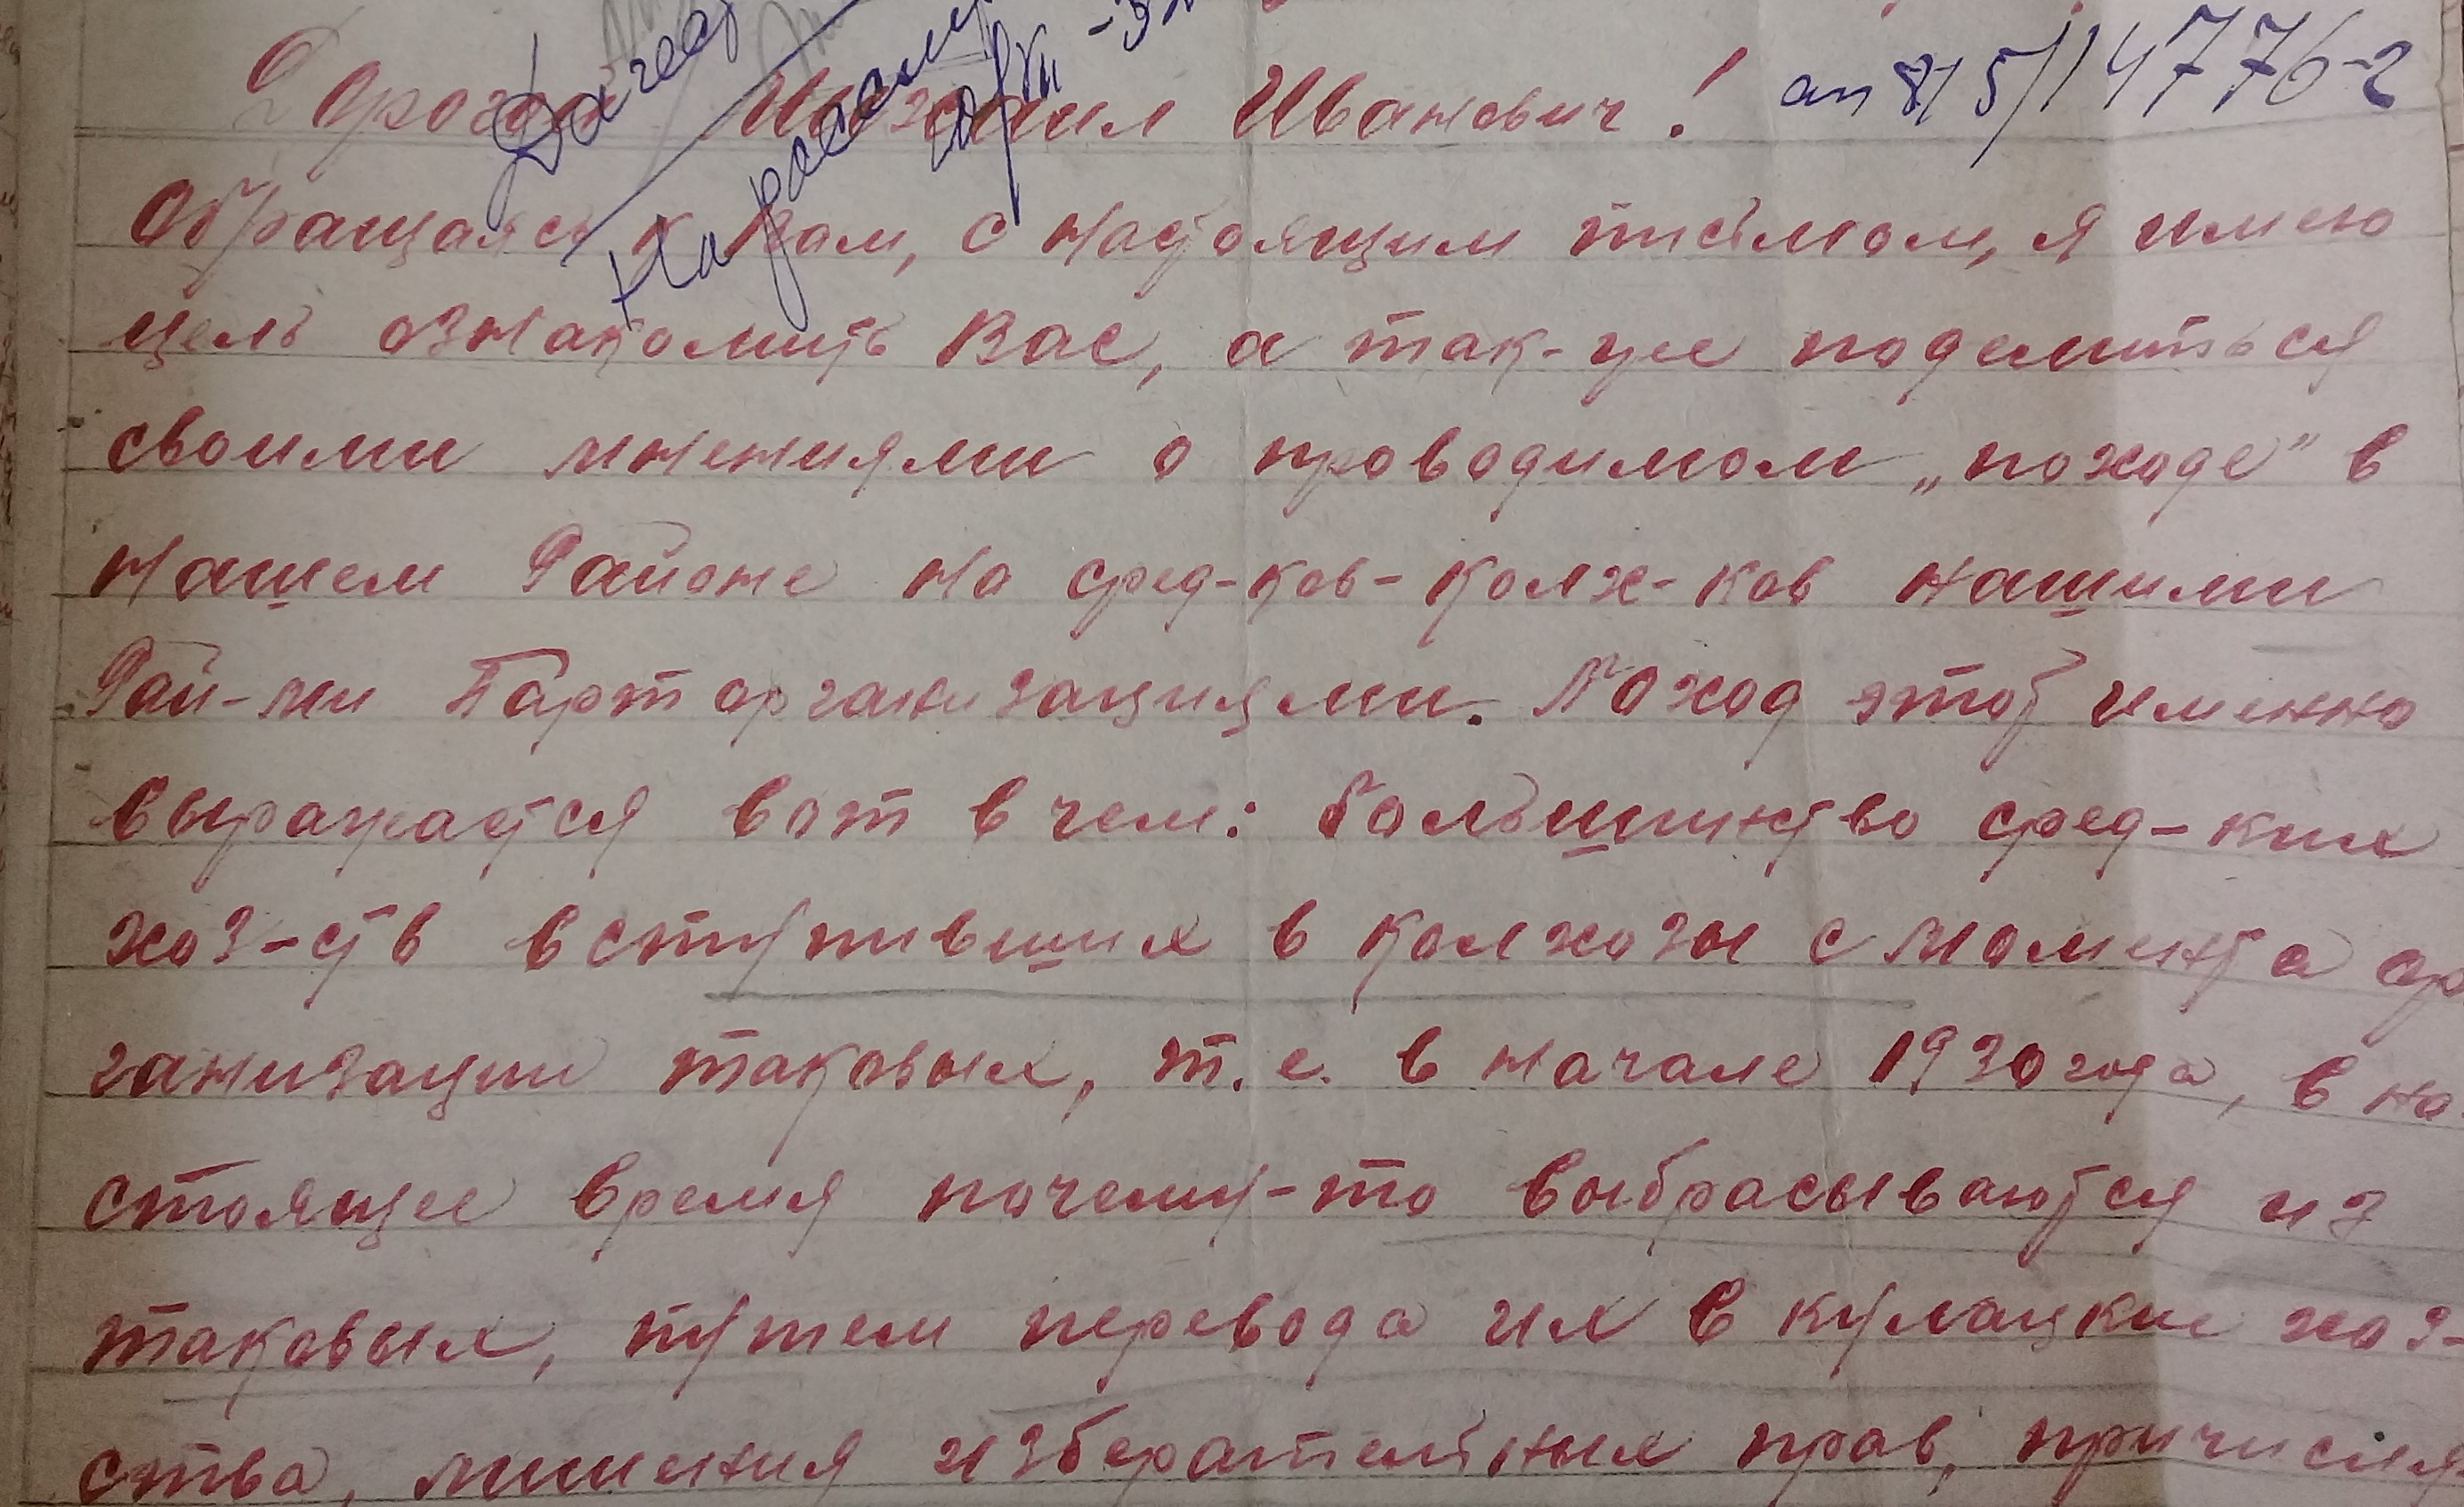 Дорогой Михаил Иванович! ап 8/5/14776-2
На рассмотр
Обращаясь к Вам, с настоящим письмом, я имею
цель ознакомить Вас, а так-же поделиться
своими мнениями о проводимом „походе" в
нашем Районе на сред-ков-колх-ков нашими
Рай-ми Парторганизациями. Поход этот именно
выражается вот в чем: большинство сред-ких
хоз-ств вступивших в колхозы с момента ор
ганизации таковых, т.е. в начале 1930 года, в на
стоящее время почему-то выбрасываются из
таковых, путем перевода их в кулацкие хоз-
ства, лишения изберательных прав, причисля